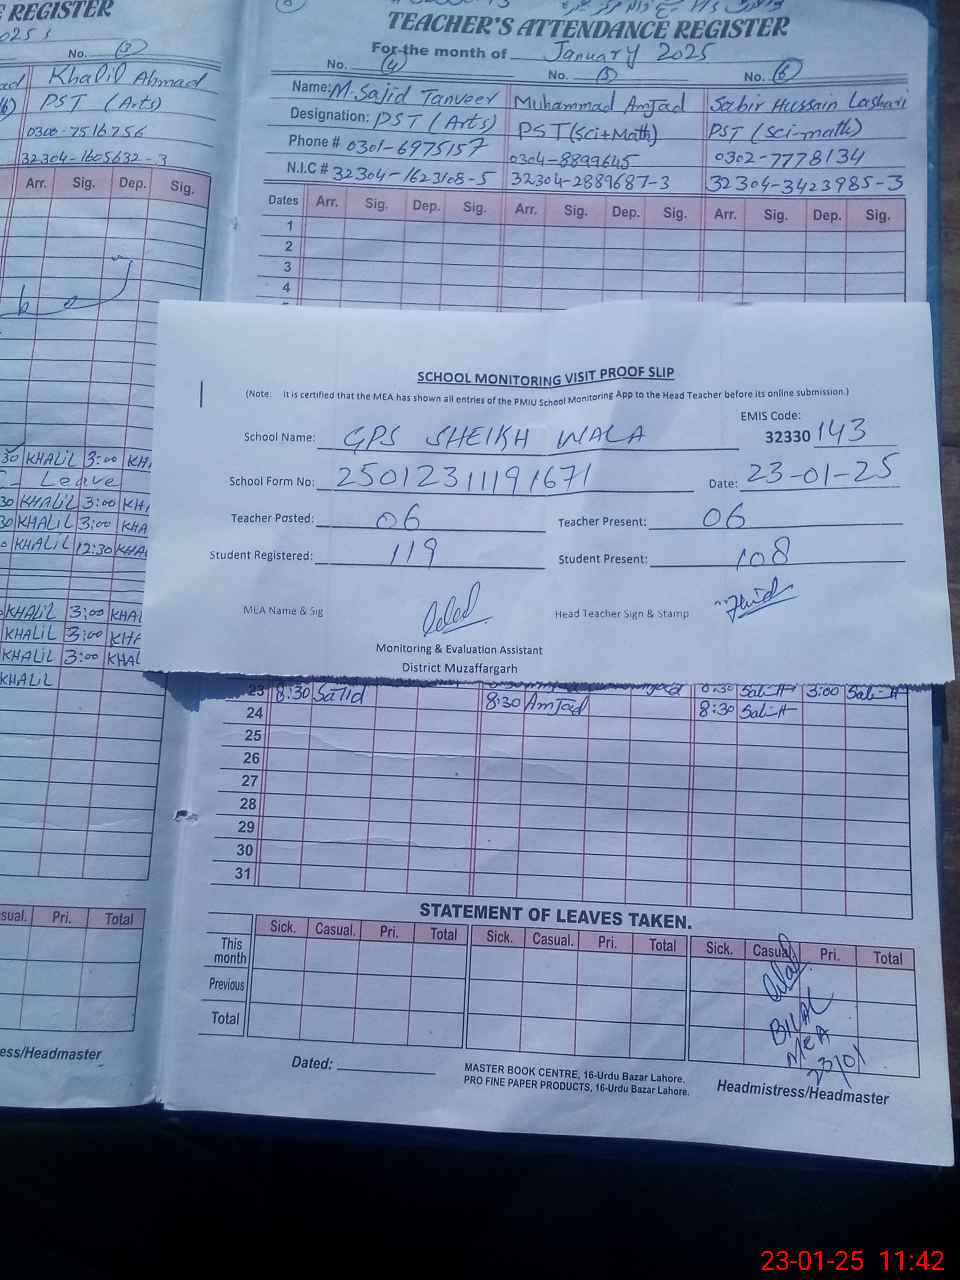 E REGISTER
No. (3)
Khalil Ahmad
PST (Arts)
0300-7516756
32304-1605632-3
Arr. Sig. Dep. Sig.
30 KHALIL 3:00 KH
Leave
30 KHALIL 3:00 KH
30 KHALIL 3:00 KHA
KHALIL 12:30 KHA
KHALIL 3:00 KHA
KHALIL 3:00 KHA
KHALIL 3:00 KHAL
KHALIL
sual. Pri. Total
ess/Headmaster
TEACHER'S ATTENDANCE REGISTER
For the month of January 2025
No. (4) No. (5) No. (6)
Name: M. Sajid Tanveer Muhammad Amjad Sabir Hussain Lashari
Designation: PST (Arts) PST (Sci+Math) PST (Sci-math)
Phone # 0301-6975157 0304-8899645 0302-7778134
N.I.C # 32304-1623108-5 32304-2889687-3 32304-3423985-3
Dates Arr. Sig. Dep. Sig. Arr. Sig. Dep. Sig. Arr. Sig. Dep. Sig.
1
2
3
4
SCHOOL MONITORING VISIT PROOF SLIP
(Note: It is certified that the MEA has shown all entries of the PMIU School Monitoring App to the Head Teacher before its online submission.)
School Name: GPS SHEIKH WALA EMIS Code: 32330 143
School Form No: 25012311191671 Date: 23-01-25
Teacher Posted: 06 Teacher Present: 06
Student Registered: 119 Student Present: 108
MEA Name & Sig Head Teacher Sign & Stamp
Monitoring & Evaluation Assistant
District Muzaffargarh
23 8:30 Sajid 3:00
24 8:30 Amjad 8:30
25
26
27
28
29
30
31
STATEMENT OF LEAVES TAKEN.
Sick. Casual. Pri. Total Sick. Casual. Pri. Total Sick. Casual Pri. Total
This month
Previous
Total
BILAL
MEA
23/01
Dated:
MASTER BOOK CENTRE, 16-Urdu Bazar Lahore.
PRO FINE PAPER PRODUCTS, 16-Urdu Bazar Lahore.
Headmistress/Headmaster
23-01-25 11:42